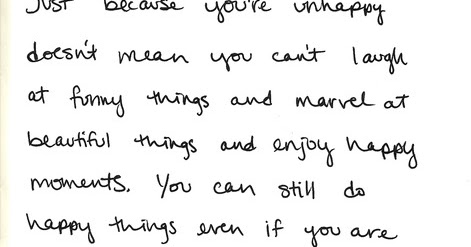 Just because you're unhappy
doesn't mean you can't laugh
at funny things and marvel at
beautiful things and enjoy happy
moments. You can still do
happy things even if you are